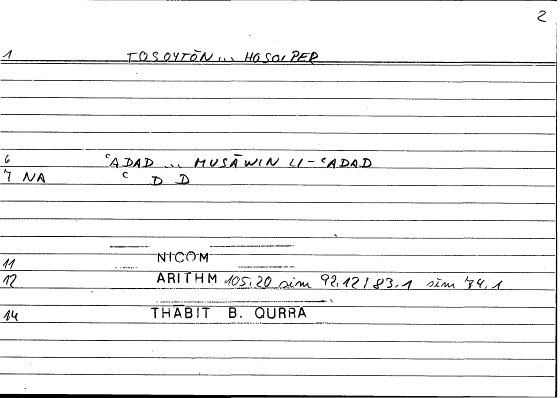 2
1 TOSOYTŌN... HOSOIPER
6 ʿADAD ... MUSĀWIN LI-ʿADAD
7 NA ʿ D D
11 NICOM
12 ARITHM 105.20 sim 92.12/83.1 sim 74.1
14 THĀBIT B. QURRA